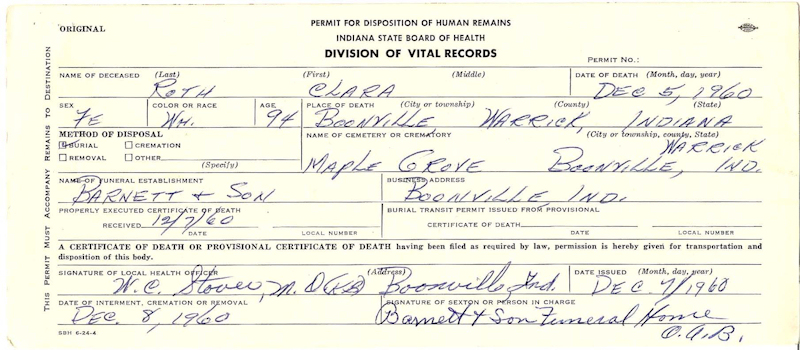 ORIGINAL
PERMIT FOR DISPOSITION OF HUMAN REMAINS
INDIANA STATE BOARD OF HEALTH
DIVISION OF VITAL RECORDS
PERMIT NO.:
THIS PERMIT MUST ACCOMPANY REMAINS TO DESTINATION
NAME OF DECEASED (Last) (First) (Middle) DATE OF DEATH (Month, day, year)
ROTH CLARA DEC 5, 1960
SEX COLOR OR RACE AGE PLACE OF DEATH (City or township) (County) (State)
FE WH. 94 BOONVILLE WARRICK, INDIANA
METHOD OF DISPOSAL NAME OF CEMETERY OR CREMATORY (City or township, county, State)
BURIAL CREMATION WARRICK
REMOVAL OTHER MAPLE GROVE BOONVILLE, IND.
(Specify)
NAME OF FUNERAL ESTABLISHMENT BUSINESS ADDRESS
BARNETT & SON BOONVILLE, IND.
PROPERLY EXECUTED CERTIFICATE OF DEATH BURIAL TRANSIT PERMIT ISSUED FROM PROVISIONAL
RECEIVED 12/7/60 CERTIFICATE OF DEATH
DATE LOCAL NUMBER DATE LOCAL NUMBER
A CERTIFICATE OF DEATH OR PROVISIONAL CERTIFICATE OF DEATH having been filed as required by law, permission is hereby given for transportation and
disposition of this body.
SIGNATURE OF LOCAL HEALTH OFFICER (Address) DATE ISSUED (Month, day, year)
W. C. Stover, M. D. Boonville Ind. DEC. 7, 1960
DATE OF INTERMENT, CREMATION OR REMOVAL SIGNATURE OF SEXTON OR PERSON IN CHARGE
DEC. 8, 1960 Barnett & Son Funeral Home
O.A.B.
SBH 6-24-4